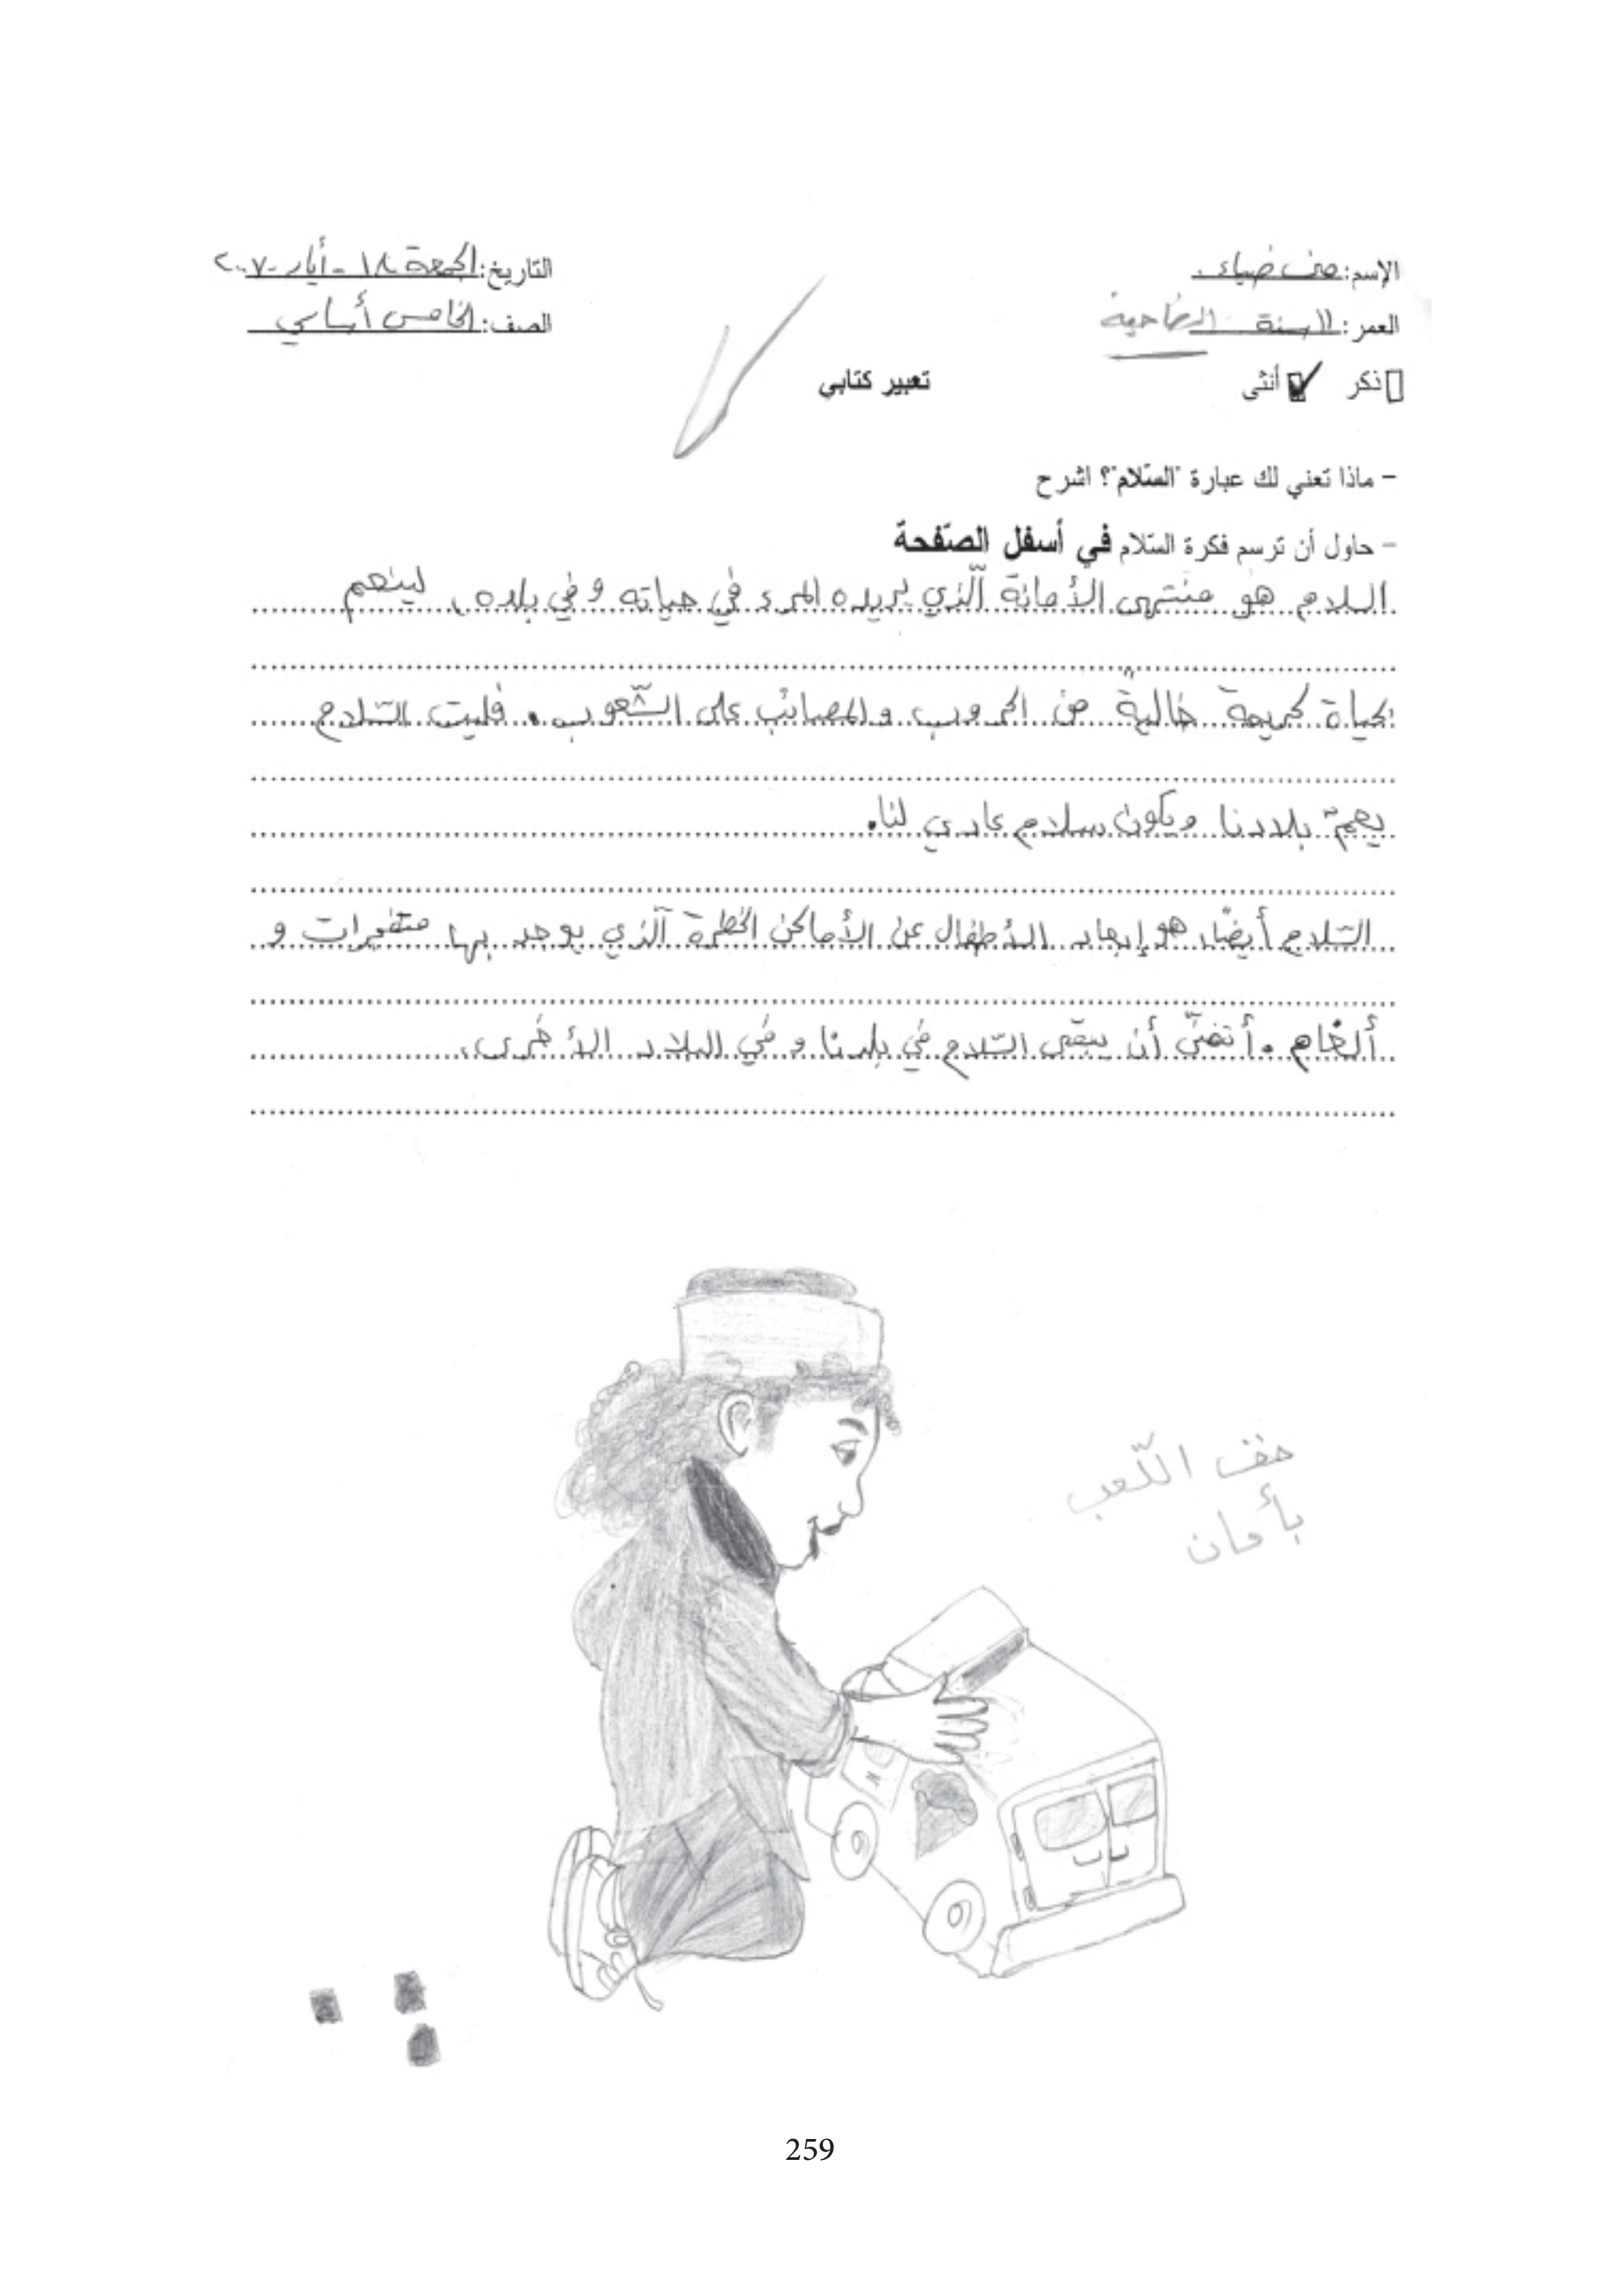 الإسم: منى ضياء.
التاريخ: الجمعة ١٨ - أيار - ٢٠٠٧
العمر: ١١ سنة الضاحية
الصف: الخامس أساسي
ذكر أنثى
تعبير كتابي
- ماذا تعني لك عبارة "السّلام"؟ اشرح
- حاول أن ترسم فكرة السّلام في أسفل الصّفحة
السلام هو منتهى الأمانة الّذي يريده المرء في حياته و في بلده، لينعم
بحياة كريمة خالية من الحروب والمصائب على الشّعوب. فليت السّلام
يعمّ بلادنا ويكون سلام عادي لنا.
السّلام أيضًا، هو إبعاد الأطفال عن الأماكن الخطرة الّذي يوجد بها متفجرات و
ألغام. أتمنّى أن يبقى السّلام في بلدنا و في البلاد الأخرى.
حقّ اللّعب
بأمان
259